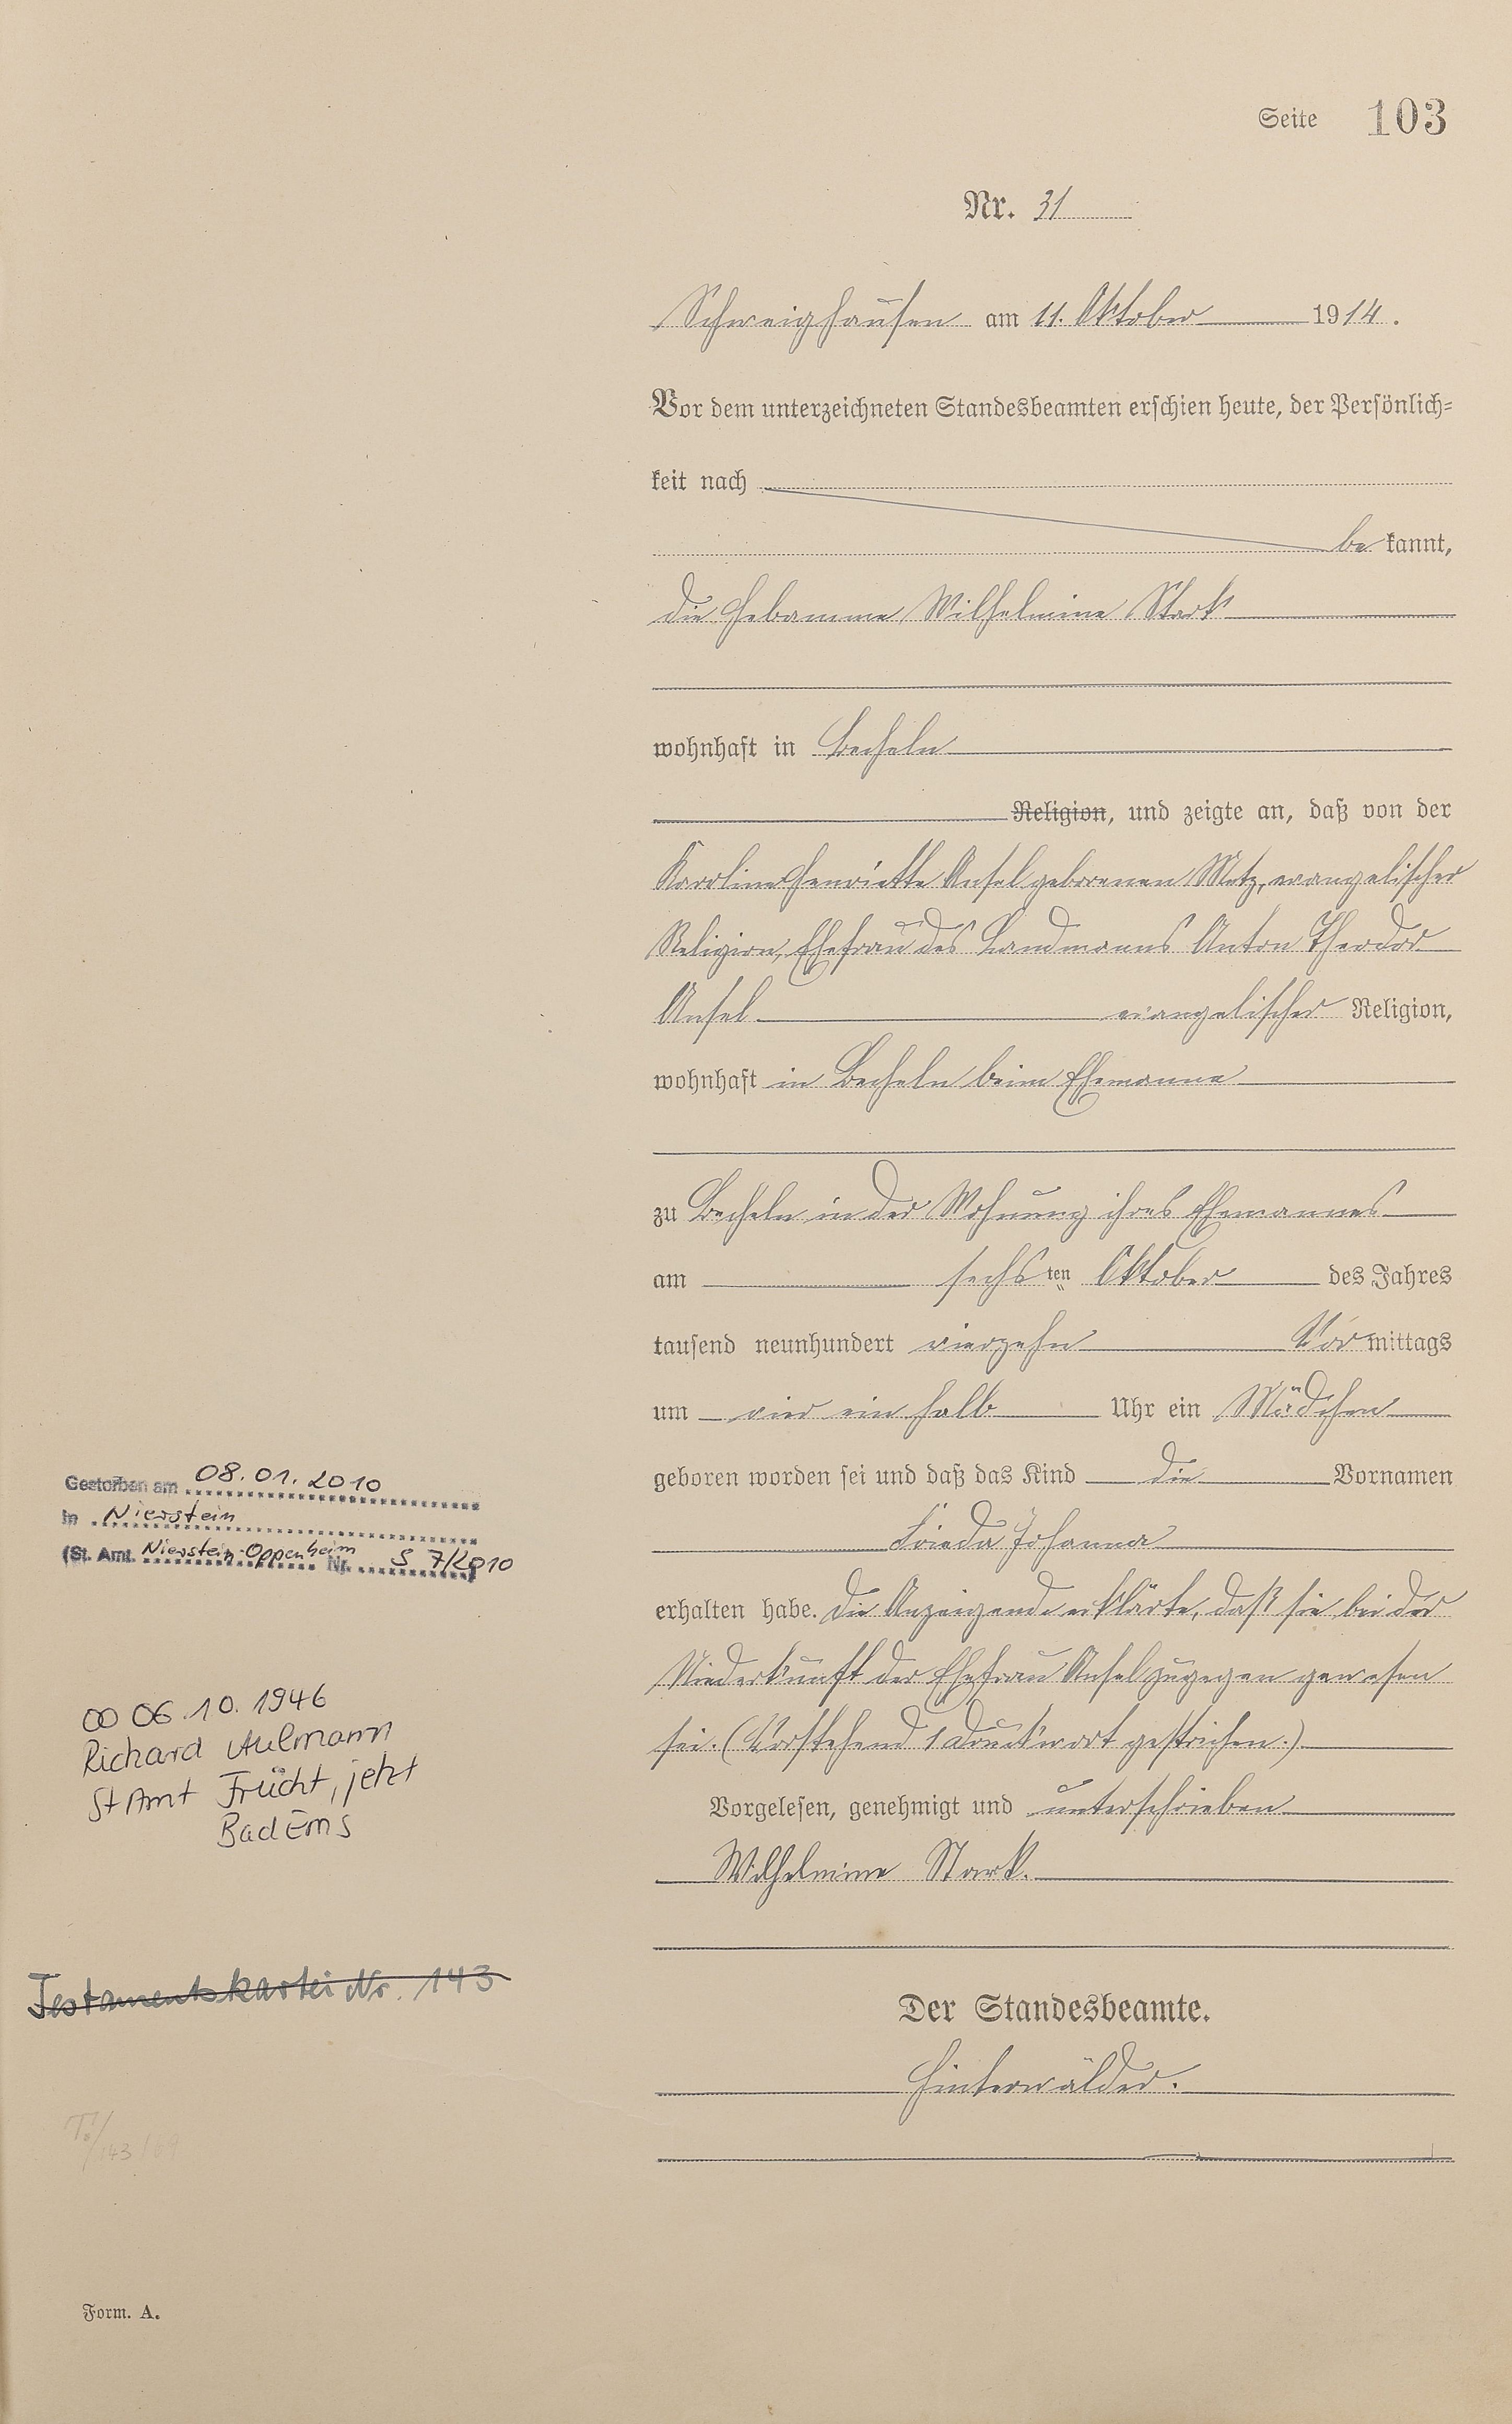 Seite 103
Nr. 31
Schweighausen am 11. Oktober 1914.
Vor dem unterzeichneten Standesbeamten erschien heute, der Persönlich=
keit nach
be kannt,
die Hebamme Wilhelmine Stark
wohnhaft in Becheln
Religion, und zeigte an, daß von der
Karoline Henriette Ansel geborenen Metz, evangelischer
Religion, Ehefrau des Landmanns Anton Theodor
Ansel evangelischer Religion,
wohnhaft in Becheln beim Ehemanne
zu Becheln in der Wohnung ihres Ehemannes
am sechs ten Oktober des Jahres
tausend neunhundert vierzehn Vor mittags
um vier ein halb Uhr ein Mädchen
geboren worden sei und daß das Kind die Vornamen
Frieda Johanna
erhalten habe. Die Anzeigende erklärte, daß sie bei der
Niederkunft der Ehefrau Ansel zugegen gewesen
sei. (Vorstehend 1 Druckwort gestrichen.)
Vorgelesen, genehmigt und unterschrieben
Wilhelmine Stark.
Der Standesbeamte.
Hinterwälder.
Gestorben am 08.01.2010
in Nierstein
(St. Amt. Nierstein-Oppenheim Nr. S 7/2010
∞ 06.10.1946
Richard Aulmann
StAmt Frücht, jetzt
Bad Ems
Testamentskartei Nr. 143
Form. A.